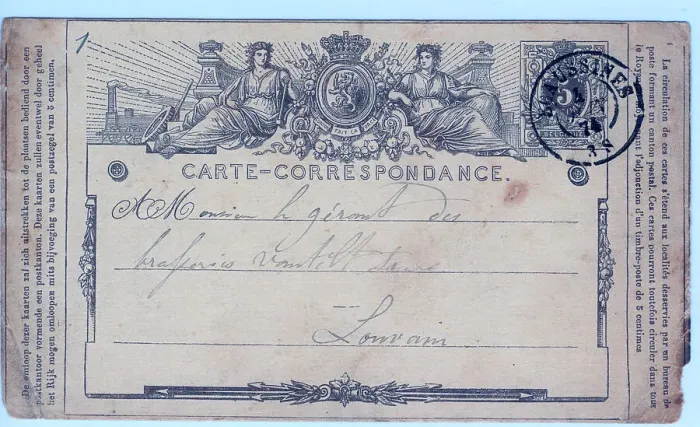 1
De omloop dezer kaarten zal zich uitstrekken tot de plaatsen bediend door een
postkantoor vormende een postkanton. Deze kaarten zullen eventwel door geheel
het Rijk mogen omloopen mits bijvoeging van een postzegel van 5 centimen.
FAIT LA
5
ECAUSSINES
74
CARTE-CORRESPONDANCE.
A Monsieur le gérant des
brasseries
Louvain
La circulation de ces cartes s'étend aux localités desservies par un bureau de
poste formant un canton postal. Ces cartes pourront toutefois circuler dans tout
le Royaume l'adjonction d'un timbre-poste de 5 centimes